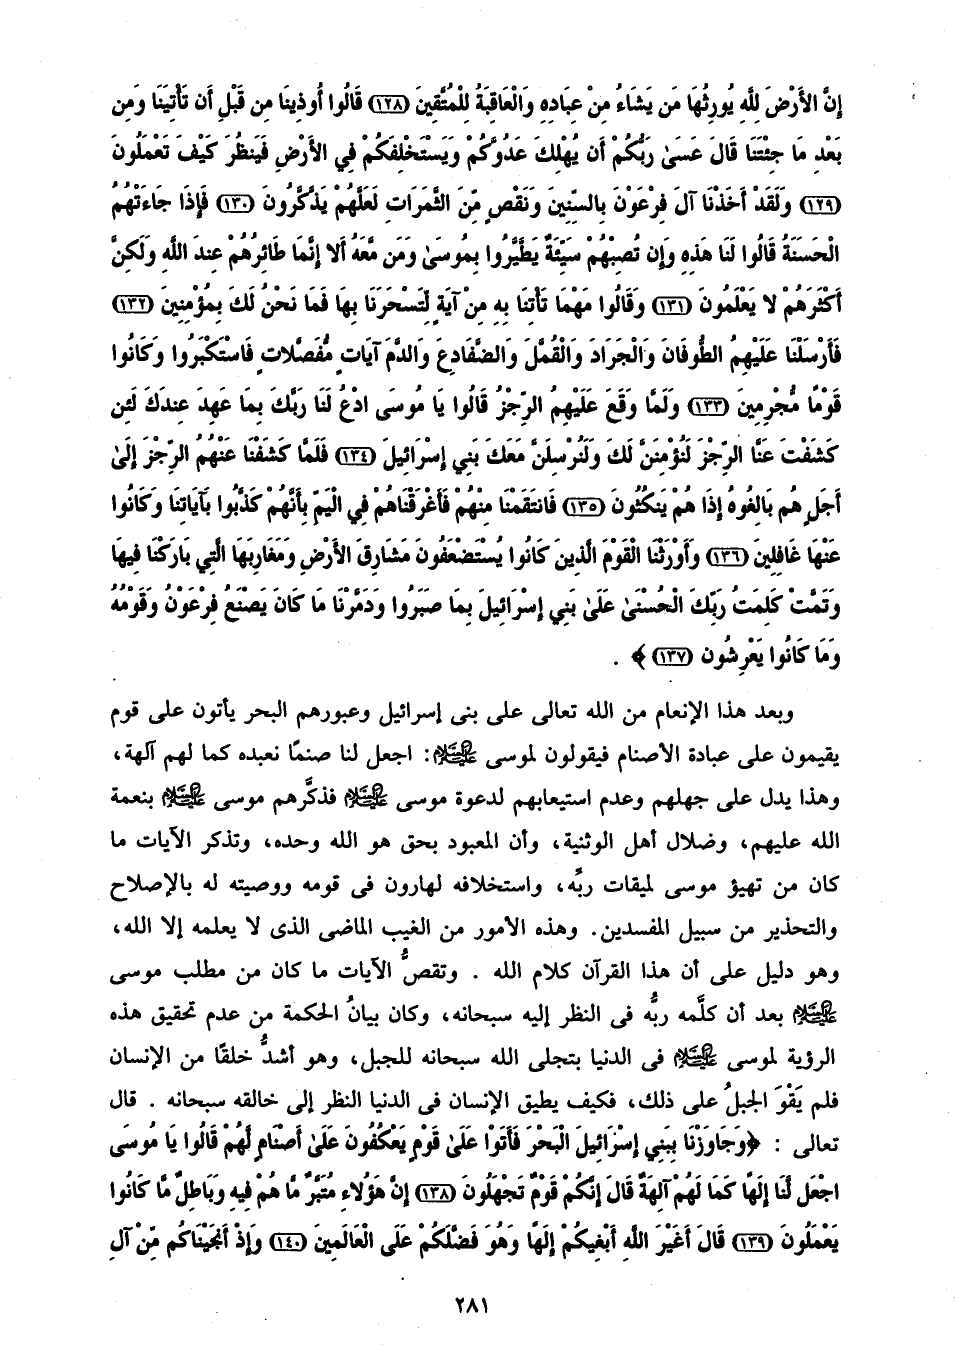 إِنَّ الأَرْضَ لِلَّهِ يُورِثُهَا مَن يَشَاءُ مِنْ عِبَادِهِ وَالْعَاقِبَةُ لِلْمُتَّقِينَ (١٢٨) قَالُوا أُوذِينَا مِن قَبْلِ أَن تَأْتِيَنَا وَمِن
بَعْدِ مَا جِئْتَنَا قَالَ عَسَىٰ رَبُّكُمْ أَن يُهْلِكَ عَدُوَّكُمْ وَيَسْتَخْلِفَكُمْ فِي الأَرْضِ فَيَنظُرَ كَيْفَ تَعْمَلُونَ
(١٢٩) وَلَقَدْ أَخَذْنَا آلَ فِرْعَوْنَ بِالسِّنِينَ وَنَقْصٍ مِّنَ الثَّمَرَاتِ لَعَلَّهُمْ يَذَّكَّرُونَ (١٣٠) فَإِذَا جَاءَتْهُمُ
الْحَسَنَةُ قَالُوا لَنَا هَذِهِ وَإِن تُصِبْهُمْ سَيِّئَةٌ يَطَّيَّرُوا بِمُوسَىٰ وَمَن مَّعَهُ أَلا إِنَّمَا طَائِرُهُمْ عِندَ اللَّهِ وَلَكِنَّ
أَكْثَرَهُمْ لا يَعْلَمُونَ (١٣١) وَقَالُوا مَهْمَا تَأْتِنَا بِهِ مِنْ آيَةٍ لِّتَسْحَرَنَا بِهَا فَمَا نَحْنُ لَكَ بِمُؤْمِنِينَ (١٣٢)
فَأَرْسَلْنَا عَلَيْهِمُ الطُّوفَانَ وَالْجَرَادَ وَالْقُمَّلَ وَالضَّفَادِعَ وَالدَّمَ آيَاتٍ مُّفَصَّلاتٍ فَاسْتَكْبَرُوا وَكَانُوا
قَوْمًا مُّجْرِمِينَ (١٣٣) وَلَمَّا وَقَعَ عَلَيْهِمُ الرِّجْزُ قَالُوا يَا مُوسَى ادْعُ لَنَا رَبَّكَ بِمَا عَهِدَ عِندَكَ لَئِن
كَشَفْتَ عَنَّا الرِّجْزَ لَنُؤْمِنَنَّ لَكَ وَلَنُرْسِلَنَّ مَعَكَ بَنِي إِسْرَائِيلَ (١٣٤) فَلَمَّا كَشَفْنَا عَنْهُمُ الرِّجْزَ إِلَىٰ
أَجَلٍ هُم بَالِغُوهُ إِذَا هُمْ يَنكُثُونَ (١٣٥) فَانتَقَمْنَا مِنْهُمْ فَأَغْرَقْنَاهُمْ فِي الْيَمِّ بِأَنَّهُمْ كَذَّبُوا بِآيَاتِنَا وَكَانُوا
عَنْهَا غَافِلِينَ (١٣٦) وَأَوْرَثْنَا الْقَوْمَ الَّذِينَ كَانُوا يُسْتَضْعَفُونَ مَشَارِقَ الأَرْضِ وَمَغَارِبَهَا الَّتِي بَارَكْنَا فِيهَا
وَتَمَّتْ كَلِمَتُ رَبِّكَ الْحُسْنَىٰ عَلَىٰ بَنِي إِسْرَائِيلَ بِمَا صَبَرُوا وَدَمَّرْنَا مَا كَانَ يَصْنَعُ فِرْعَوْنُ وَقَوْمُهُ
وَمَا كَانُوا يَعْرِشُونَ (١٣٧)﴾ .
وبعد هذا الإنعام من الله تعالى على بنى إسرائيل وعبورهم البحر يأتون على قوم
يقيمون على عبادة الأصنام فيقولون لموسى عليه السلام: اجعل لنا صنمًا نعبده كما لهم آلهة،
وهذا يدل على جهلهم وعدم استيعابهم لدعوة موسى عليه السلام فذكَّرهم موسى عليه السلام بنعمة
الله عليهم، وضلال أهل الوثنية، وأن المعبود بحق هو الله وحده، وتذكر الآيات ما
كان من تهيؤ موسى لميقات ربِّه، واستخلافه لهارون فى قومه ووصيته له بالإصلاح
والتحذير من سبيل المفسدين. وهذه الأمور من الغيب الماضى الذى لا يعلمه إلا الله،
وهو دليل على أن هذا القرآن كلام الله . وتقصُّ الآيات ما كان من مطلب موسى
عليه السلام بعد أن كلَّمه ربُّه فى النظر إليه سبحانه، وكان بيانُ الحكمة من عدم تحقيق هذه
الرؤية لموسى عليه السلام فى الدنيا بتجلى الله سبحانه للجبل، وهو أشدُّ خلقًا من الإنسان
فلم يَقْوَ الجبلُ على ذلك، فكيف يطيق الإنسان فى الدنيا النظر إلى خالقه سبحانه . قال
تعالى : ﴿وَجَاوَزْنَا بِبَنِي إِسْرَائِيلَ الْبَحْرَ فَأَتَوْا عَلَىٰ قَوْمٍ يَعْكُفُونَ عَلَىٰ أَصْنَامٍ لَّهُمْ قَالُوا يَا مُوسَى
اجْعَل لَّنَا إِلَهًا كَمَا لَهُمْ آلِهَةٌ قَالَ إِنَّكُمْ قَوْمٌ تَجْهَلُونَ (١٣٨) إِنَّ هَؤُلاءِ مُتَبَّرٌ مَّا هُمْ فِيهِ وَبَاطِلٌ مَّا كَانُوا
يَعْمَلُونَ (١٣٩) قَالَ أَغَيْرَ اللَّهِ أَبْغِيكُمْ إِلَهًا وَهُوَ فَضَّلَكُمْ عَلَى الْعَالَمِينَ (١٤٠) وَإِذْ أَنجَيْنَاكُم مِّنْ آلِ
٢٨١